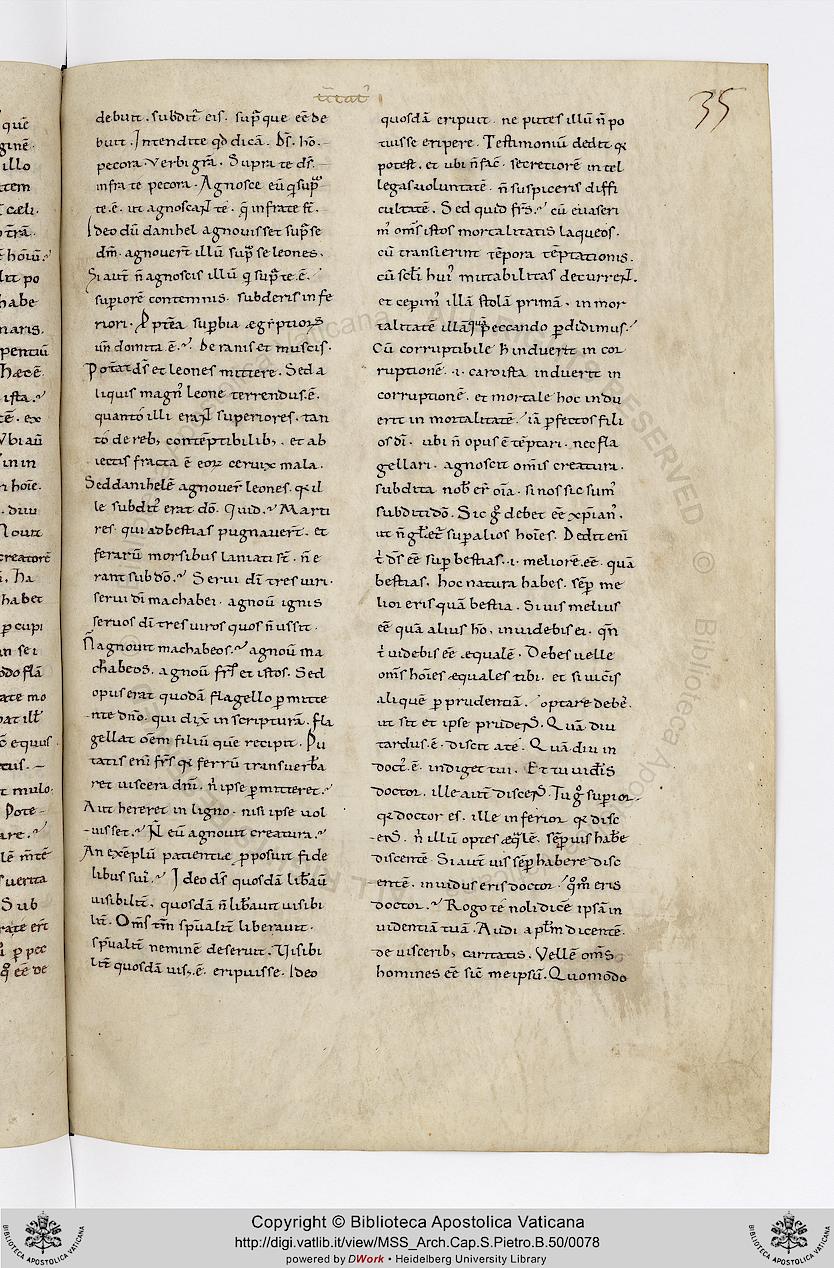 35
debuit. subdit᷒ eis. sup̄ que eē de
buit. Intendite qd dicā. D̄s. hō.
pecora. verbi gr̄a. Supra te d̄s.
infra te pecora. Agnosce eū q̇ sup̄
te. ē. ut agnoscant te. q̄ infra te st̄.
Ideo dū danihel agnovisset sup̄ se
dm̄. agnover̄t illū sup̄ se leones.
Si aut̄ n̄ agnoscis illū q̇ sup̄ te. ē.
superiorē contemnis. subderis infe
riori. P ptēa supbia ægiptiors
un̄ domita ē. De ranis et muscis.
Potat d̄s et leones mittere. Sed a
liquis magn᷒ leone terrendus. ē.
quanto illi erant superiores. tan
to de reb; contēptibilib;. et ab
iectis fracta ē eoꝝ cervix mala.
Sed danihelē agnover̄ leones. q̨ il
le subdit᷒ erat dō. Quid. Marti
res. qui ad bestias pugnaver̄t. et
ferarū morsibus laniati st̄. n̄ e
rant sub dō. Servi dī tres viri.
servi dī machabei. agnov̄ ignis
servos dī tres viros quos n̄ ussit.
N̄ agnovit machabeos. agnov̄ ma
chabeos. agnov̄ fr̄s et istos. Sed
opus erat quodā flagello pmitte
nte dn̄o. qui dix̄ in scripturā. fla
gellat om̄em filiū quē recipit. Pu
tatis enī fr̄s q̨ ferrū transverba
ret viscera dm̄. n̄ ipse pmitteret.
Aut hereret in ligno. nisi ipse vol
uisset. N̄ eū agnovit creatura.
An exēplū patientie pposuit fide
libus sui᷒. Ideo d̄s quosdā lib̄av̄
visibilit̄. quosdā n̄ lib̄avit visibi
lit̄. Om̄s tm̄ spūalit̄ liberavit.
spūalit̄ neminē deseruit. Visibi
lit̄ quosdā vis;. ē. eripuisse. Ideo
quosdā eripuit. ne putes illū n̄ po
tuisse eripere. Testimoniū dedit q̨
potest. et ubi n̄ fac̄. secretiorē intel
legas voluntatē. n̄ suspiceris diffi
cultatē. Sed quid fr̄s. cū evaseri
m᷒ om̄s istos mortalitatis laqueos.
cū transierint tēpora tēptationis.
cū sc̄li hui᷒ mutabilitas decurrent.
et ceperim᷒ illā stolā primā. in mor
talitatē illā quā peccando pdidimus.
Cū corruptibile h̄ induerit in cor
ruptionē. .i. caro ista induerit in
corruptionē. et mortale hoc indu
erit in mortalitatē. iā pfectos fili
os dī. ubi n̄ opus ē tēptari. nec fla
gellari. agnoscit om̄is creatura.
subdita nob̄ er̄ oīa. si nos sic sum᷒
subditi dō. Sic g̊ debet eē xpian᷒.
ut n̄ glēt᷒ super alios hoīes. Dedit enī
t̄ d̄s eē sup̄ bestias. .i. meliorē. eē. quā
bestias. hoc natura habes. sēp me
lior eris quā bestia. Si vis melius
eē quā alius hō. invidebis ei. qn̄
t̄ videbis eē æqualē. Debes velle
om̄s hoīes æquales tibi. et si vicis
aliquē p prudentiā. optare debē.
ut sit et ipse prudens. Quā diu
tardus. ē. discit a te. Quā diu in
doct᷒. ē. indiget tui. Et tu vidēis
doctor. ille aut̄ discens. Tu g̊ superior.
q̨ doctor es. ille inferior q̨ disc
ens. n̄ illū optes æq̄lē. sēp vis hab̄e
discentē. Si aut̄ vis sēp habere disc
entē. invidus eris doctor. q̄m̄ eris
doctor. Rogo te noli dicē ipsā in
videntiā tuā. Audi apl̄m dicentē.
de viscerib; caritatis. Vellē om̄s
homines eē sic̄ me ipsū. Quomodo
Copyright © Biblioteca Apostolica Vaticana
http://digi.vatlib.it/view/MSS_Arch.Cap.S.Pietro.B.50/0078
powered by DWork • Heidelberg University Library
BIBLIOTECA APOSTOLICA VATICANA
BIBLIOTECA APOSTOLICA VATICANA